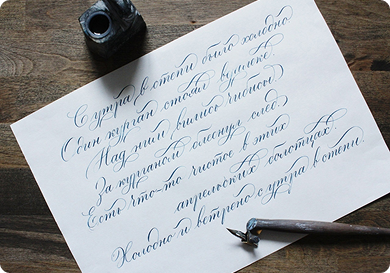 С утра в степи было холодно
Один курган стоял вдалеке.
Над ним вились чибисы
За курганом блеснул след
Есть что-то чистое в этих
апрельских болотцах!
Холодно и ветрено с утра в степи.